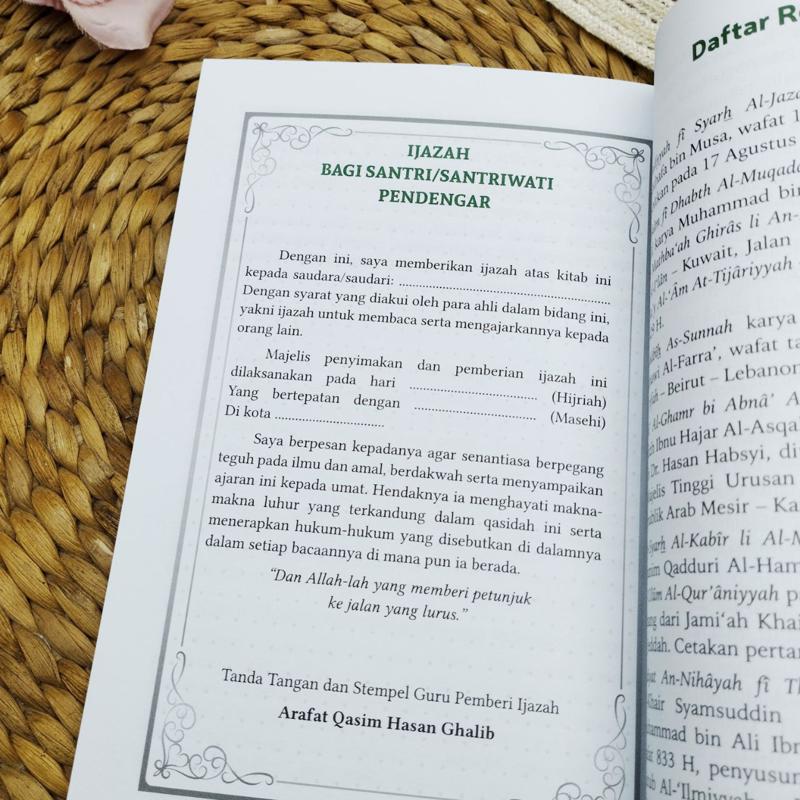 IJAZAH
BAGI SANTRI/SANTRIWATI
PENDENGAR
Dengan ini, saya memberikan ijazah atas kitab ini
kepada saudara/saudari: ......................................................
Dengan syarat yang diakui oleh para ahli dalam bidang ini,
yakni ijazah untuk membaca serta mengajarkannya kepada
orang lain.
Majelis penyimakan dan pemberian ijazah ini
dilaksanakan pada hari ................................ (Hijriah)
Yang bertepatan dengan ............................... (Masehi)
Di kota ............................
Saya berpesan kepadanya agar senantiasa berpegang
teguh pada ilmu dan amal, berdakwah serta menyampaikan
ajaran ini kepada umat. Hendaknya ia menghayati makna-
makna luhur yang terkandung dalam qasidah ini serta
menerapkan hukum-hukum yang disebutkan di dalamnya
dalam setiap bacaannya di mana pun ia berada.
“Dan Allah-lah yang memberi petunjuk
ke jalan yang lurus.”
Tanda Tangan dan Stempel Guru Pemberi Ijazah
Arafat Qasim Hasan Ghalib
Daftar
fî Syarh Al-
bin Musa, wafat
pada 17 Agustus
fî Dhabth
karya Muhammad bin
Ghirâs li An-
– Kuwait, Jalan
Al-‘Âm At-Tijâriyyah
H.
As-Sunnah karya
Al-Farra’, wafat
– Beirut – Lebanon
Al-Ghamr bi Abnâ’
Ibnu Hajar
Dr. Hasan Habsyi,
Tinggi Urusan
Arab Mesir –
Al-Kabîr li
Qadduri
Al-Qur’âniyyah
dari Jami‘ah
Cetakan
An-Nihâyah fî
Syamsuddin
bin Ali
833 H, penyusun
Al-‘Ilmiyyah